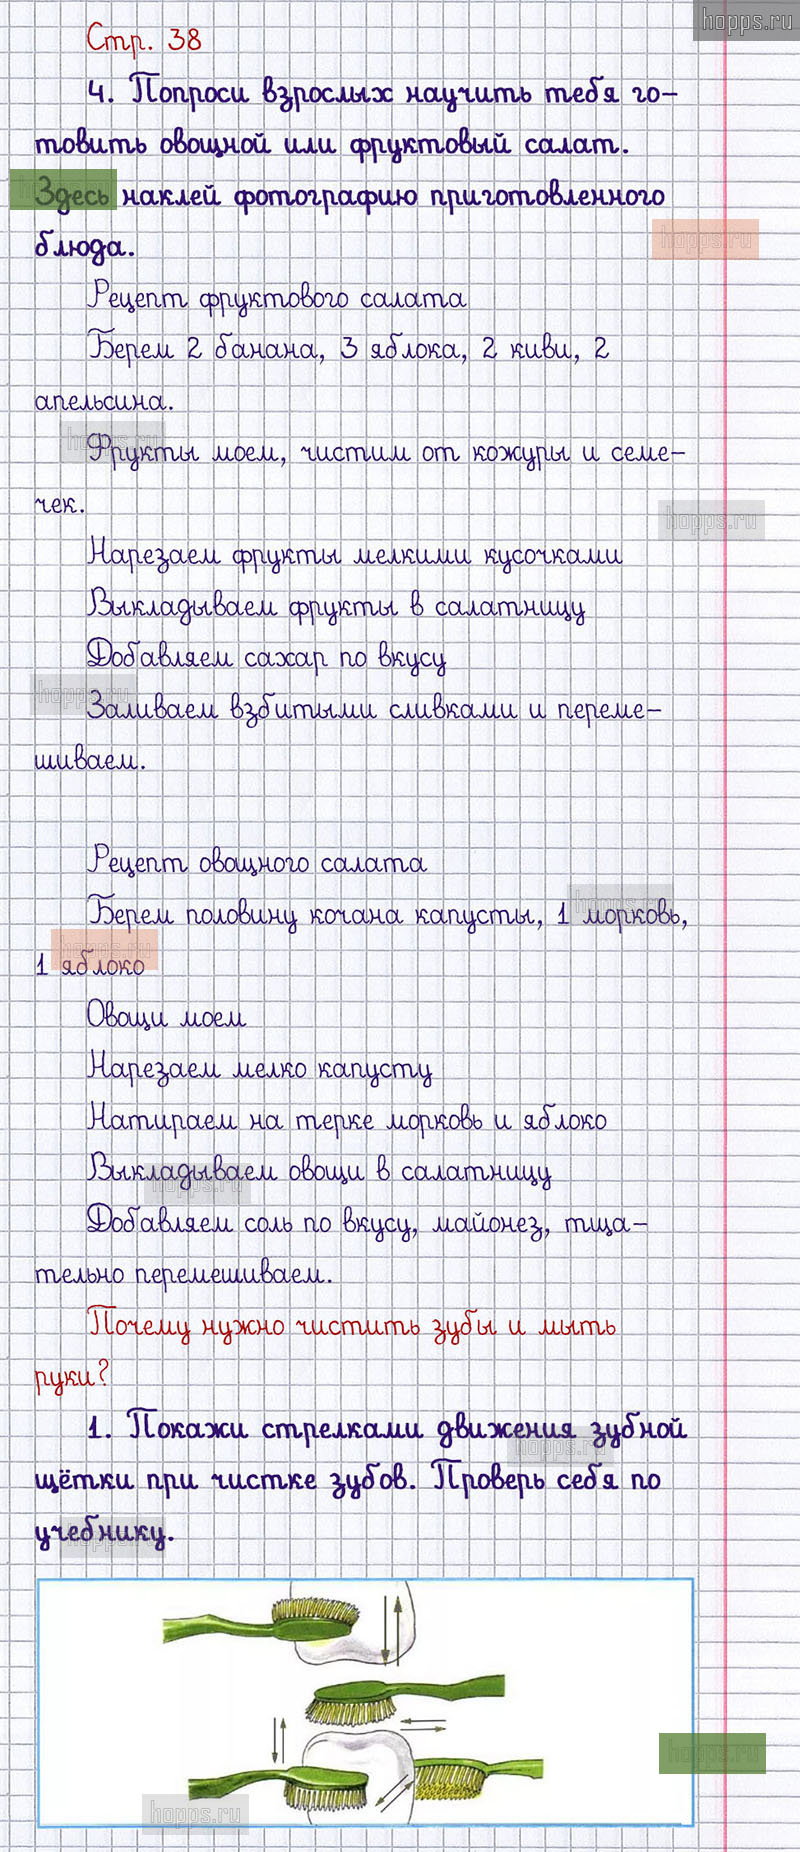 hopps.ru
Стр. 38
4. Попроси взрослых научить тебя го-
товить овощной или фруктовый салат.
Здесь наклей фотографию приготовленного
hopps.ru
блюда.
Рецепт фруктового салата
Берем 2 банана, 3 яблока, 2 киви, 2
апельсина.
hopps.ru
Фрукты моем, чистим от кожуры и семе-
чек.
hopps.ru
Нарезаем фрукты мелкими кусочками
Выкладываем фрукты в салатницу
Добавляем сахар по вкусу
hopps.ru
Заливаем взбитыми сливками и переме-
шиваем.
Рецепт овощного салата
hopps.ru
Берем половину кочана капусты, 1 морковь,
hopps.ru
1 яблоко
Овощи моем
Нарезаем мелко капусту
Натираем на терке морковь и яблоко
Выкладываем овощи в салатницу
hopps.ru
Добавляем соль по вкусу, майонез, тща-
тельно перемешиваем.
Почему нужно чистить зубы и мыть
руки?
1. Покажи стрелками движения зубной
hopps.ru
щётки при чистке зубов. Проверь себя по
учебнику.
hopps.ru
hopps.ru
hopps.ru